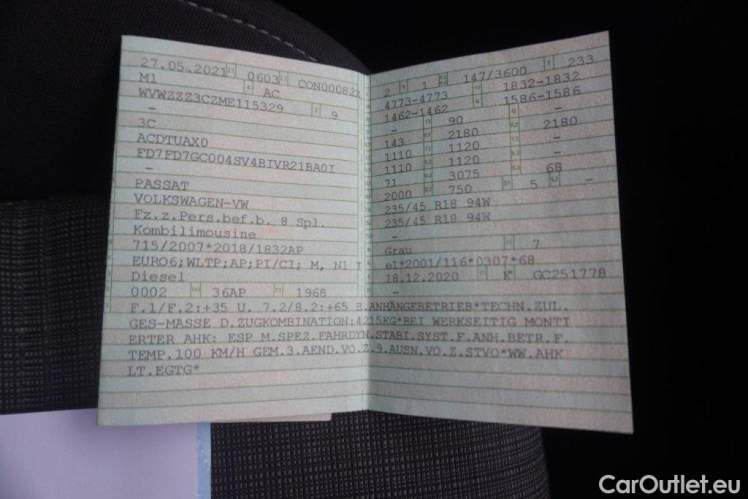 27.05.2021 0603 CON00082
M1 AC
WVWZZZ3CZME115329 9
-
3C
ACDTUAX0
FD7FD7GC004SV4BIVR21BA0I
-
PASSAT
VOLKSWAGEN-VW
Fz.z.Pers.bef.b. 8 Spl.
Kombilimousine
715/2007*2018/1832AP
EURO6;WLTP;AP;PI/CI; M, N1 I
Diesel
0002 36AP 1968
2 1 147/3600 233
4773-4773 1832-1832
1462-1462 1586-1586
- 90
143 2180 2180
1110 1120
1110 1120
71 3075 68
2000 750 5 -
235/45 R18 94W
235/45 R18 94W
-
Grau 7
e1*2001/116*0307*68
18.12.2020 K GC251778
F.1/F.2:+35 U. 7.2/8.2:+65 B.ANHÄNGEBETRIEB*TECHN.ZUL.
GES-MASSE D.ZUGKOMBINATION:4215KG*BEI WERKSEITIG MONTI
ERTER AHK: ESP M.SPEZ.FAHRDYN.STABI.SYST.F.ANH.BETR.F.
TEMP.100 KM/H GEM.3.AEND.VO.Z.9.AUSN.VO.Z.STVO*WW.AHK
LT.EGTG*
CarOutlet.eu